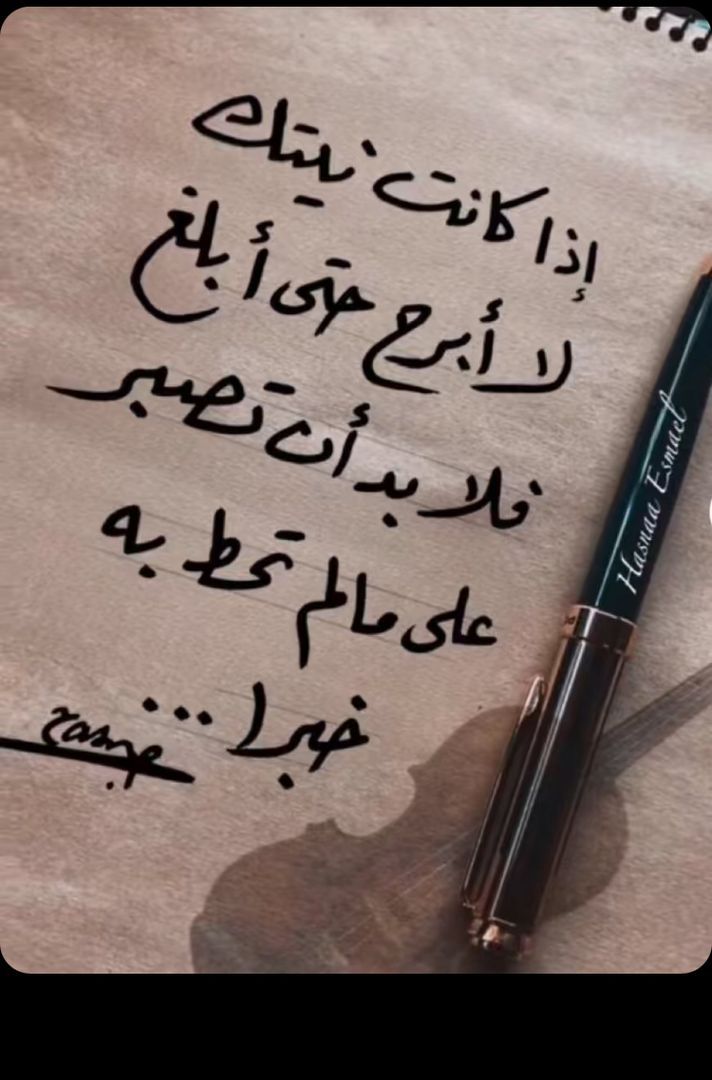 إذا كانت نيتك
لا أبرح حتى أبلغ
فلا بد أن تصبر
على مالم تحط به
خبرا...
Hasnaa Esmael